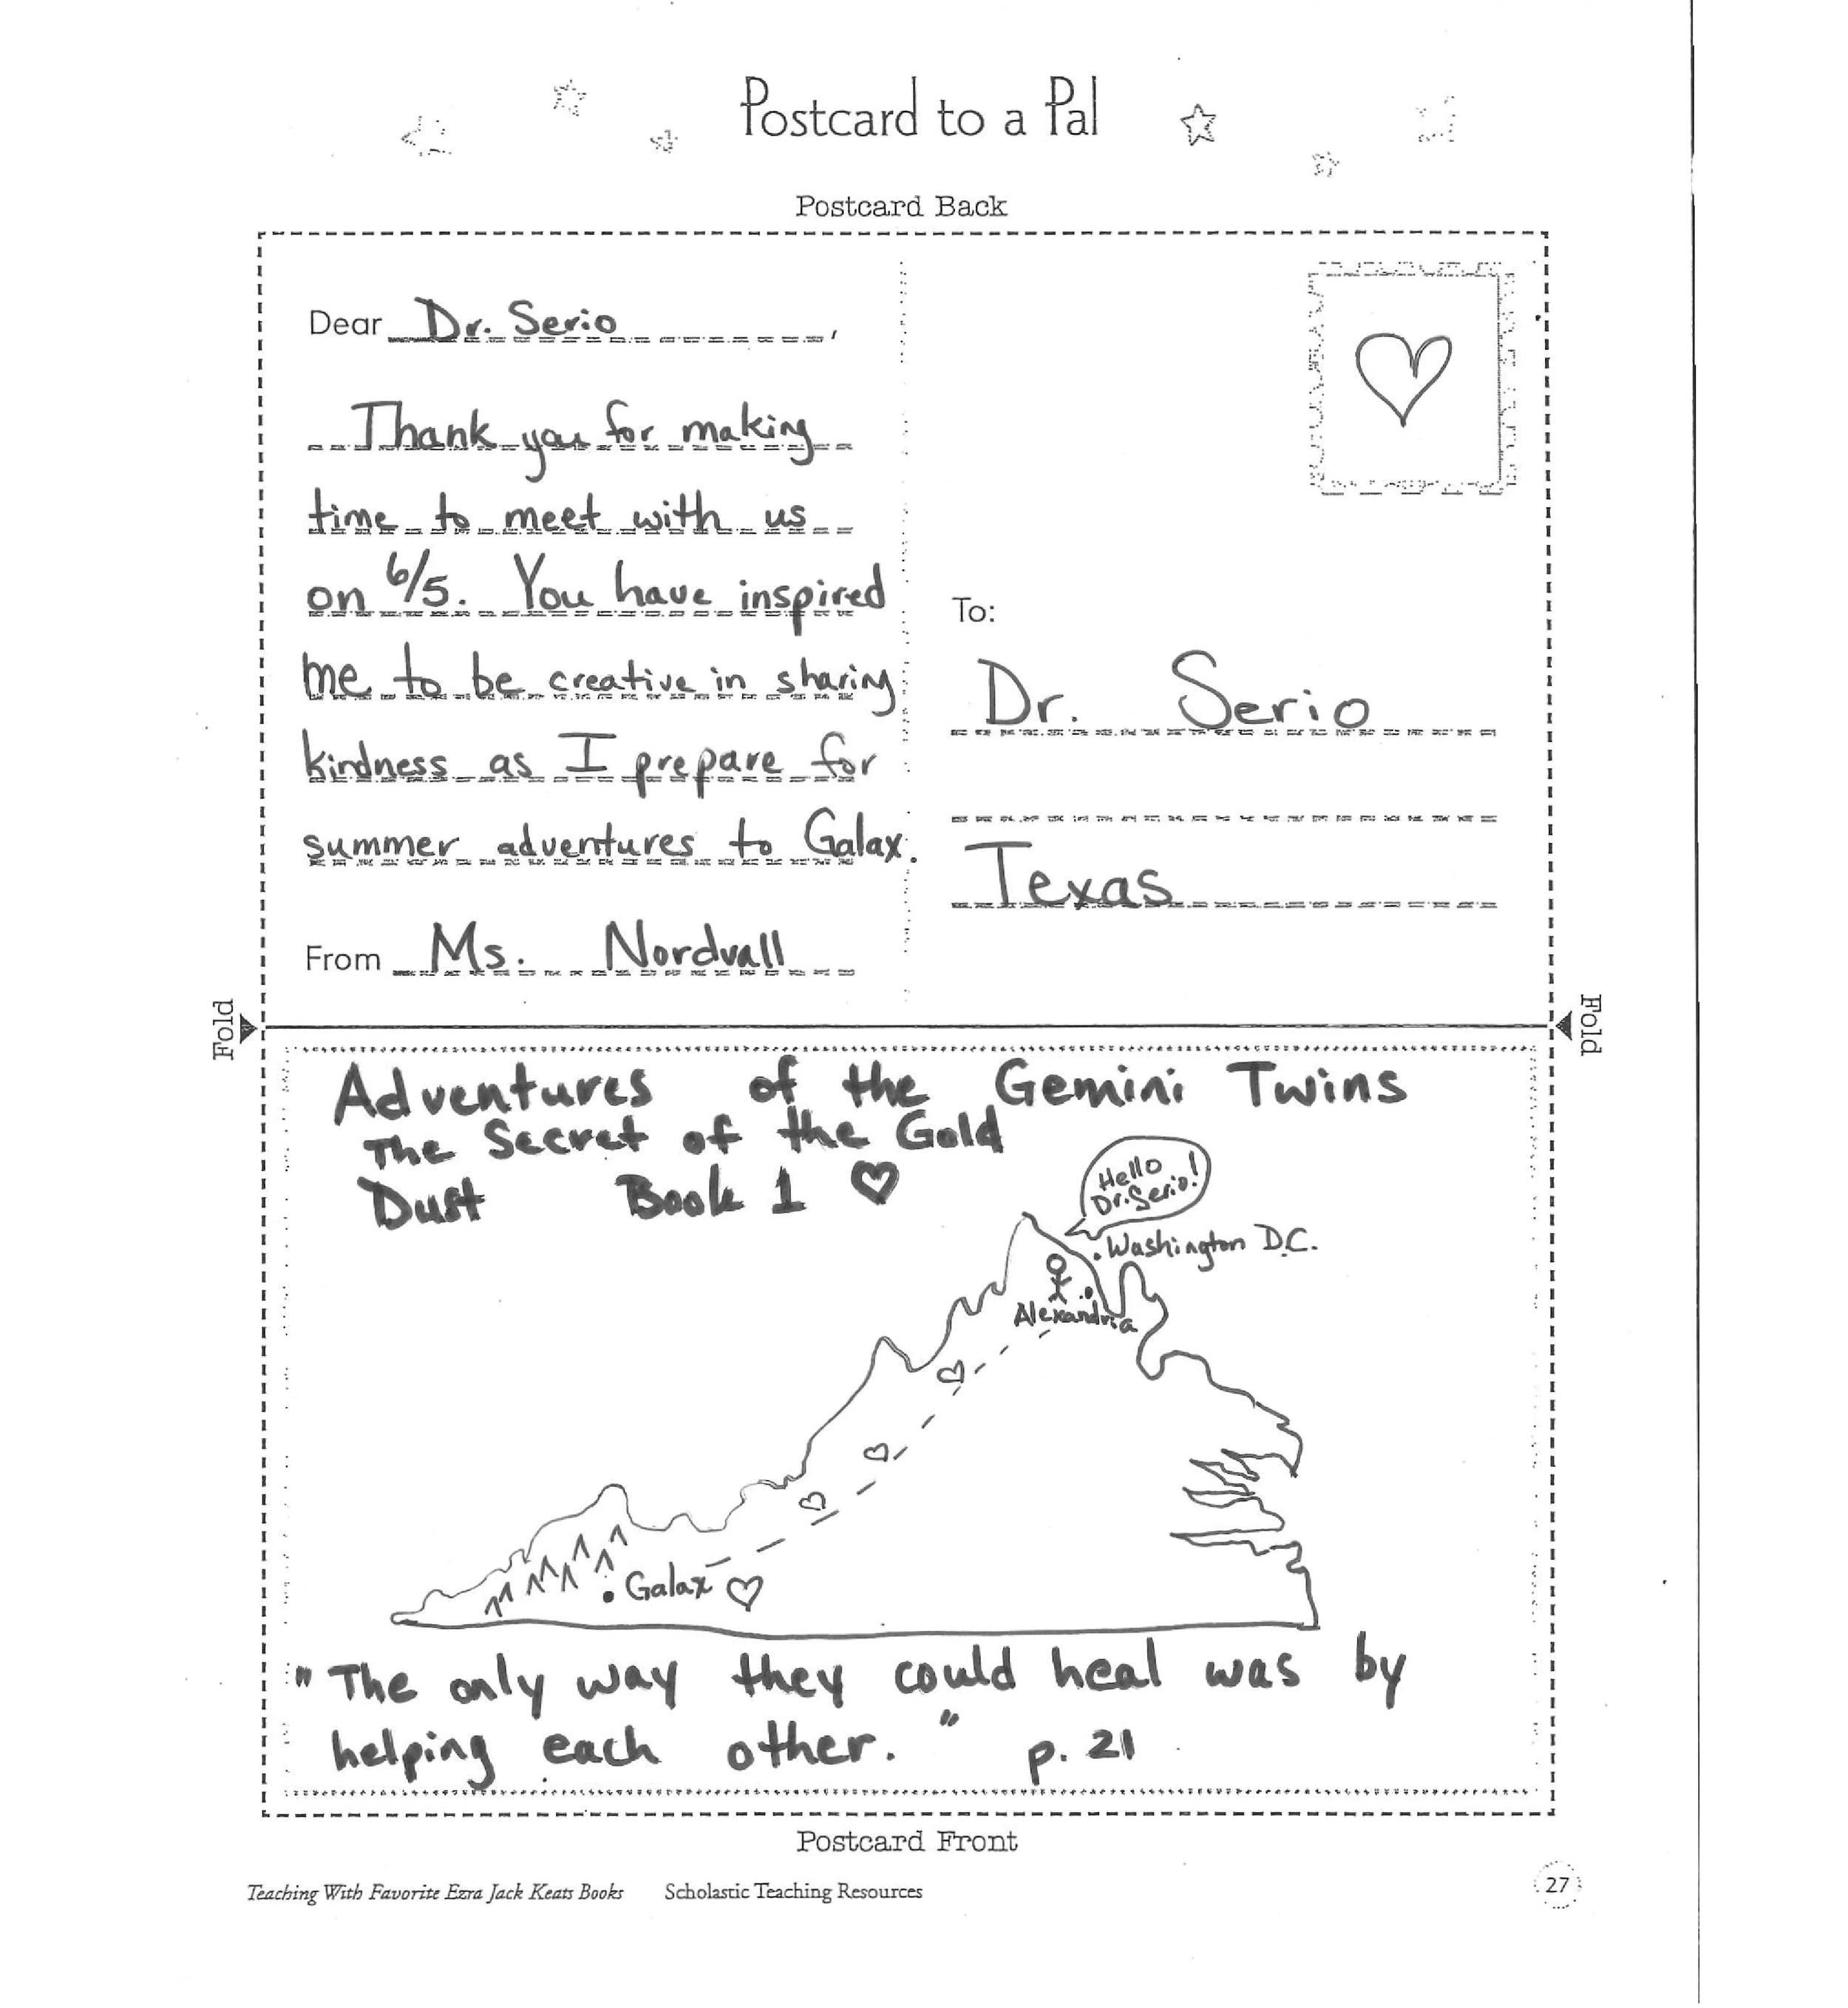 Postcard to a Pal
Postcard Back
Dear Dr. Serio,
Thank you for making
time to meet with us
on 6/5. You have inspired
me to be creative in sharing
kindness as I prepare for
summer adventures to Galax.
From Ms. Nordvall
To:
Dr. Serio
Texas
Fold
Fold
Adventures of the Gemini Twins
The Secret of the Gold
Dust Book 1
Hello
Dr. Serio!
Washington D.C.
Alexandria
Galax
"The only way they could heal was by
helping each other." p. 21
Postcard Front
Teaching With Favorite Ezra Jack Keats Books Scholastic Teaching Resources
27